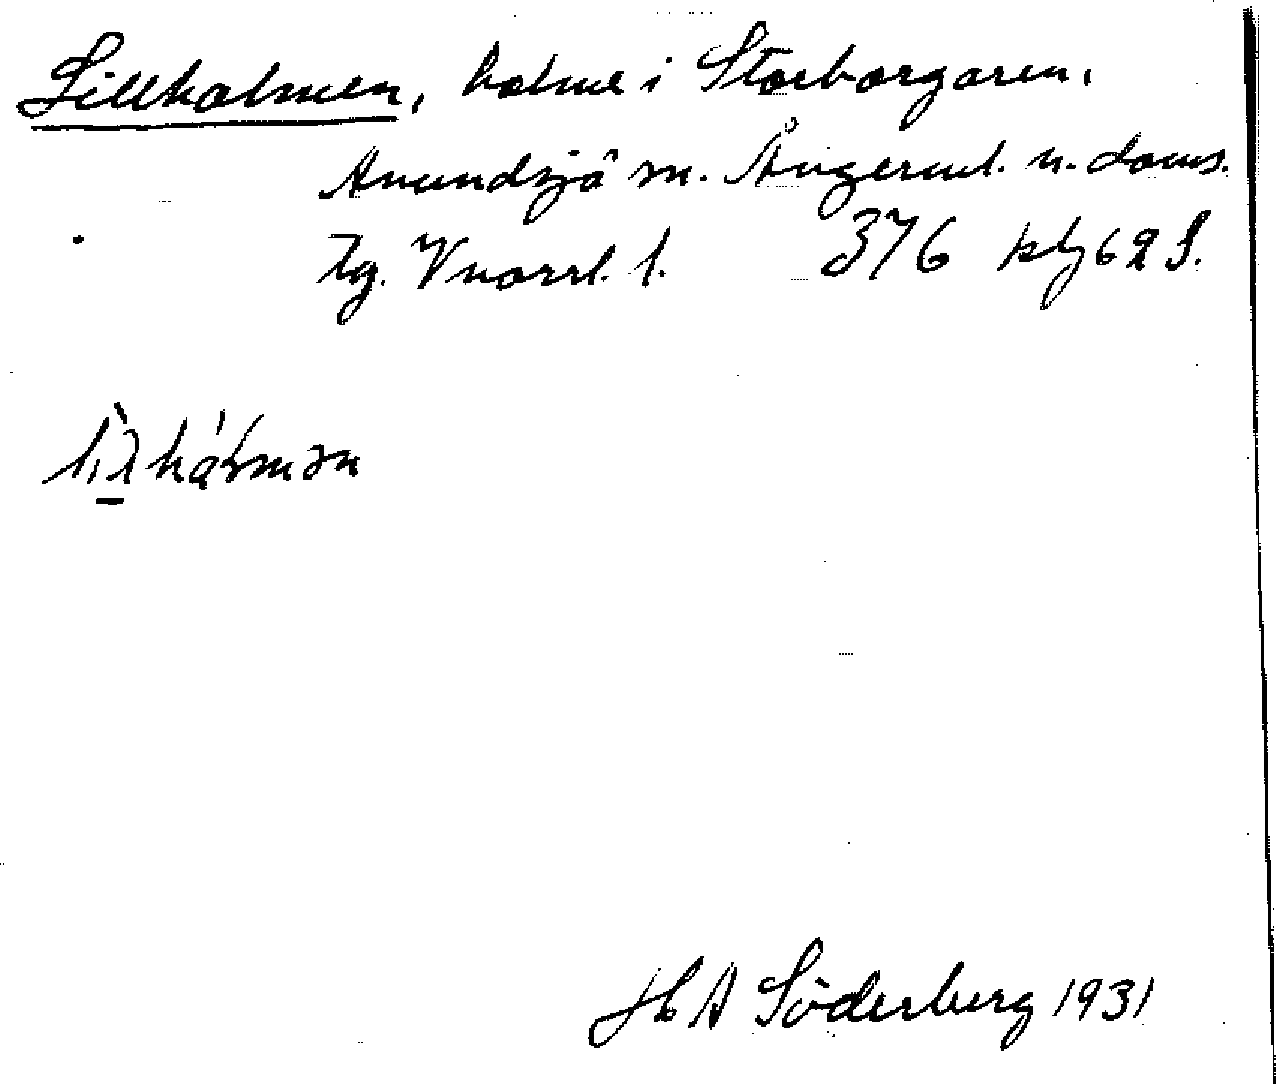 Lillholmen, holme i Storborgaren.
Anundsjö sn. Ångerml. n. doms.
Tg. Vnorrl. l. 376 plg 62 S.
H A Söderberg 1931